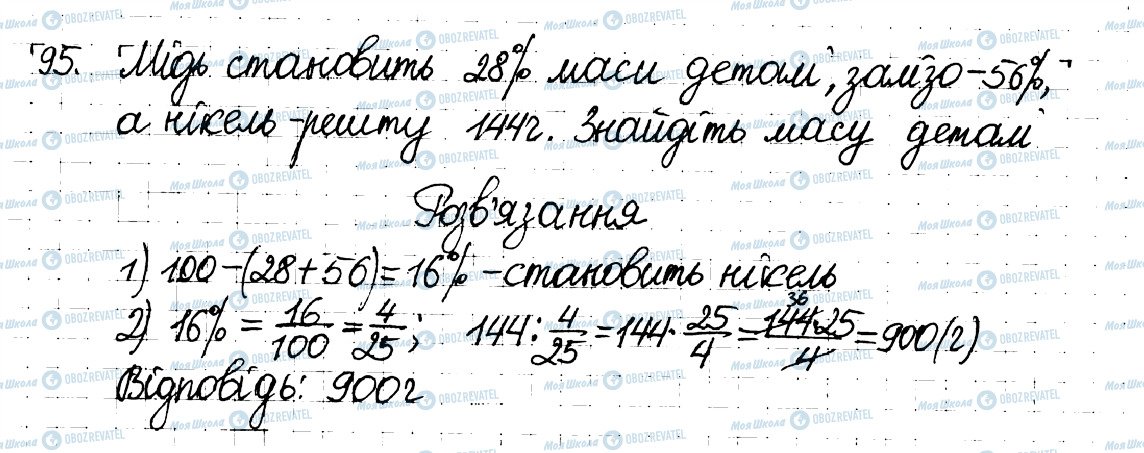 95. Мідь становить 28% маси деталі, залізо – 56%,
а нікель – решту 144г. Знайдіть масу деталі
Розв'язання
1) 100 – (28 + 56) = 16% – становить нікель
2) 16% = 16/100 = 4/25; 144 : 4/25 = 144 · 25/4 = 144·25/4 36 = 900 (г)
Відповідь: 900г
МояШкола OBOZREVATEL